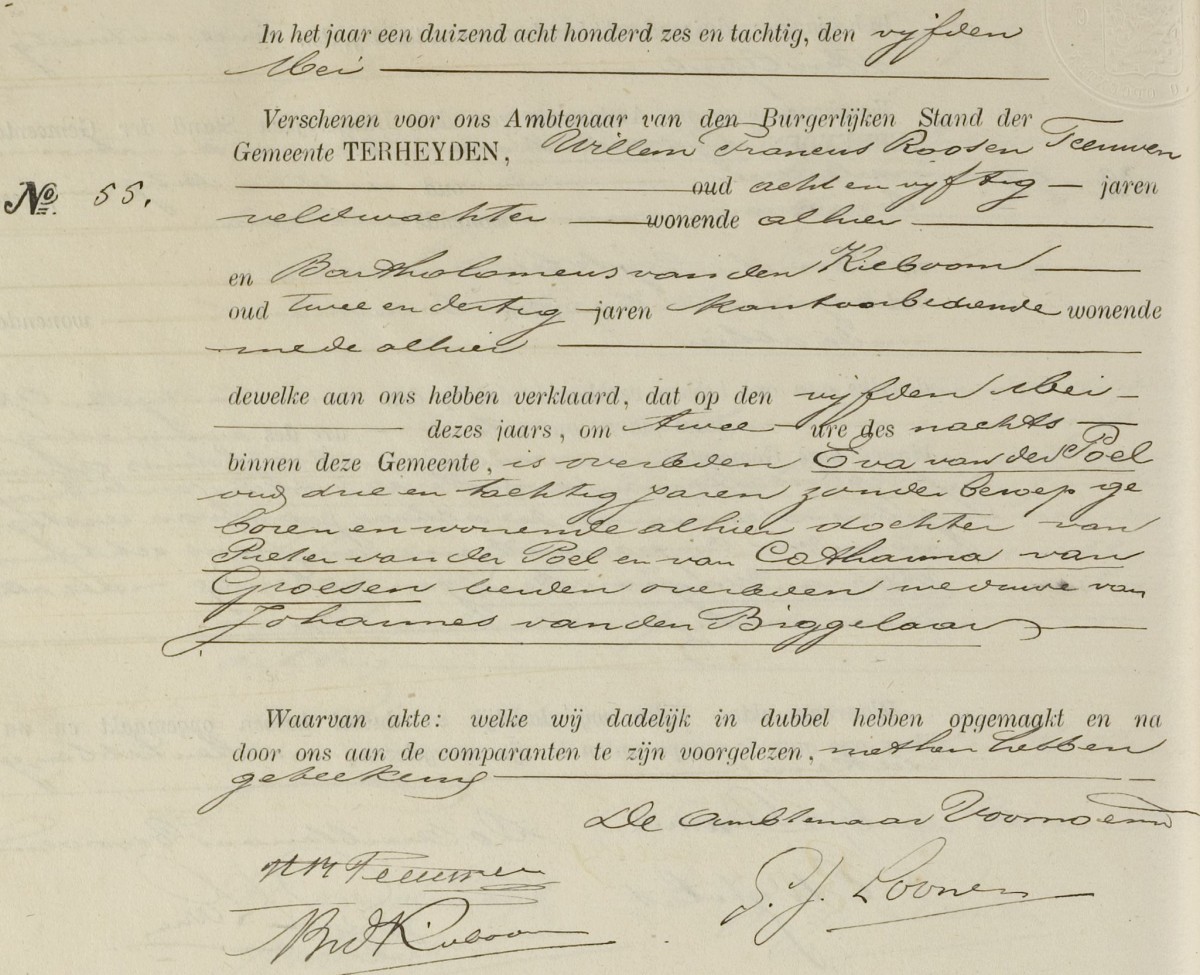 In het jaar een duizend acht honderd zes en tachtig, den vijfden
Mei
Verschenen voor ons Ambtenaar van den Burgerlijken Stand der
Gemeente TERHEYDEN, Willem Francus Roosen Teeuwen
No. 55.
oud acht en vijftig jaren
veldwachter wonende alhier
en Bartholomeus van den Kieboom
oud twee en dertig jaren kantoorbediende wonende
mede alhier
dewelke aan ons hebben verklaard, dat op den vijfden Mei
dezes jaars, om twee ure des nachts
binnen deze Gemeente, is overleden Eva van der Poel
oud drie en tachtig jaren zonder beroep ge
boren en wonende alhier dochter van
Pieter van der Poel en van Catharina van
Groesen beiden overleden weduwe van
Johannes van den Biggelaar
Waarvan akte: welke wij dadelijk in dubbel hebben opgemaakt en na
door ons aan de comparanten te zijn voorgelezen, met hen hebben
geteekend
De Ambtenaar Voornoemd
Teeuwen
G. J. Loonen
Bvd Kieboom